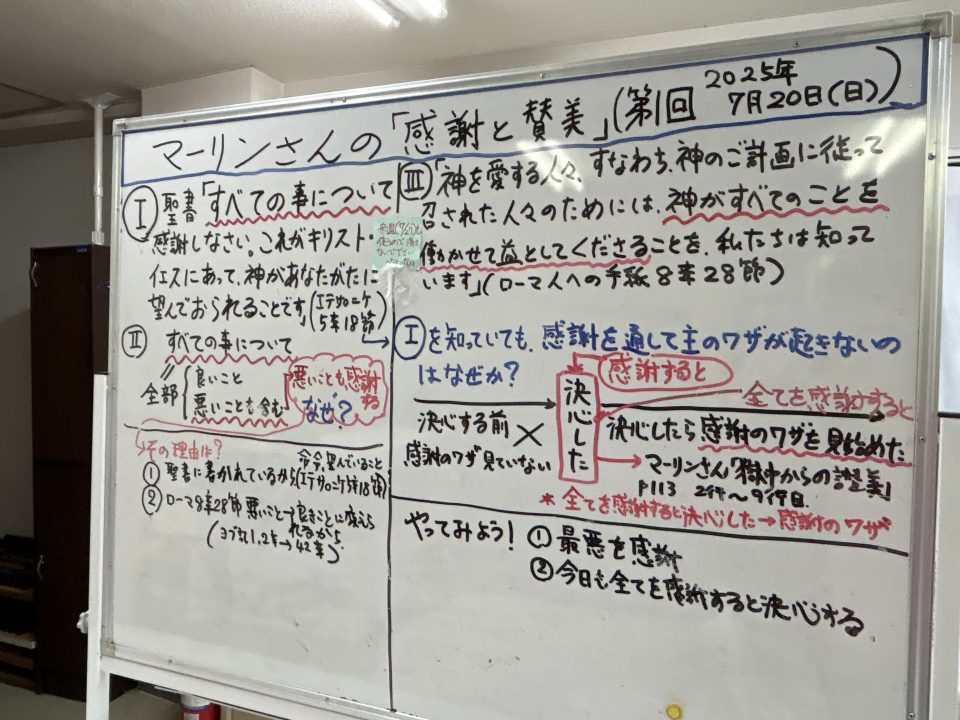 マーリンさんの「感謝と賛美」(第1回 2025年
7月20日(日))
Ⅰ 聖書「すべての事について
感謝しなさい。これがキリスト・
イエスにあって、神があなたがたに
望んでおられることです」(Ⅰテサロニケ
5章18節)
Ⅱ すべての事について
〃
全部 { 良いこと
悪いことも含む
悪いことも感謝する
なぜ?
その理由は?
① 聖書に書かれているから(Ⅰテサロニケ5章18節)
命令、望んでいること
② ローマ8章28節 悪いこと→良きことに変えら
れるから。
(ヨブ記1.2章→42章)
Ⅲ「神を愛する人々、すなわち、神のご計画に従って
召された人々のためには、神がすべてのことを
働かせて益としてくださることを、私たちは知って
います」(ローマ人への手紙8章28節)
Ⅰを知っていても、感謝を通して主のワザが起きないの
はなぜか?
感謝すると
決心した
全てを感謝すると
決心する前
感謝のワザ見ていない
決心したら感謝のワザを見始めた
マーリンさん「獄中からの讃美」
P113 2行〜9行目
*全てを感謝すると決心した→感謝のワザ*
やってみよう! ① 最悪を感謝
② 今日も全てを感謝すると決心する